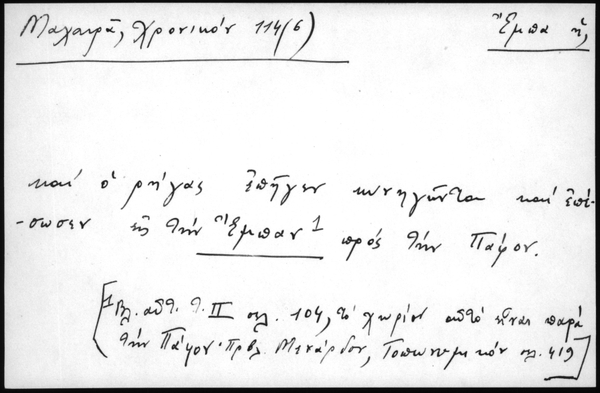 Μαχαιρᾶ, Χρονικόν 114(6)
Ἔμπα ἡ,
καί ὁ ρήγας ἐπῆγεν κυνηγῶντα καί ἐπέ-
-σωσεν εἰς τήν Ἔμπαν 1 πρός τήν Πάφον.
[1 Βλ. αὐτ. τ. II σελ. 104, τό χωρίον αὐτό εἶναι παρά
τήν Πάφον· Πρβλ. Μενάρδου, Τοπωνυμικόν σελ. 419]